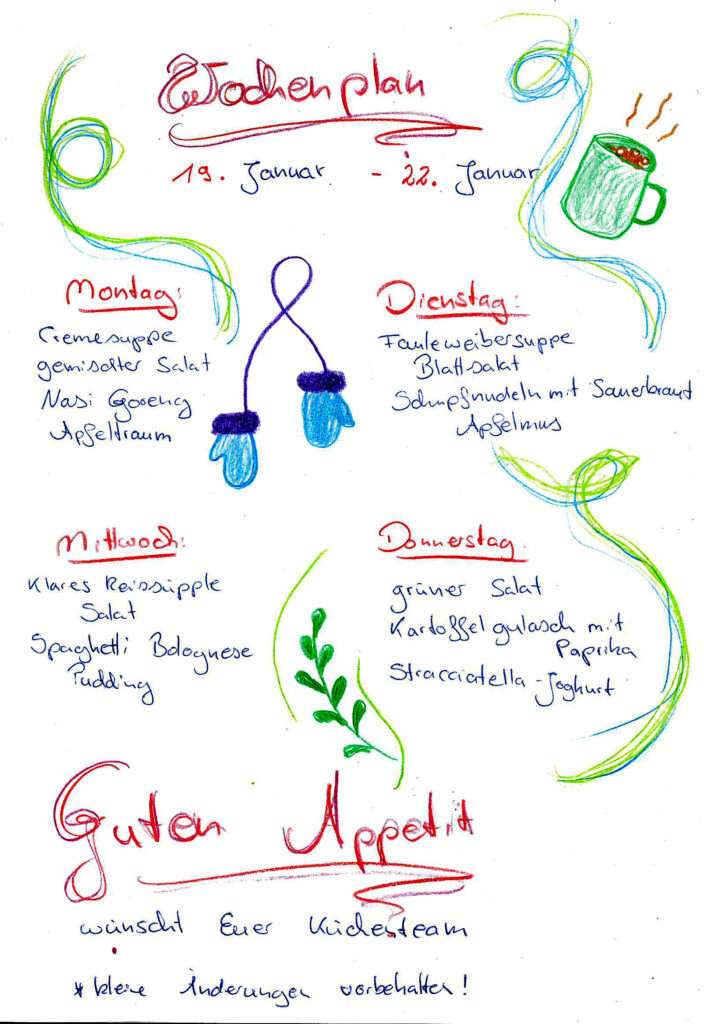 Wochenplan
19. Januar - 22. Januar
Montag:
Cremesuppe
gemischter Salat
Nasi Goreng
Apfeltraum
Dienstag:
Fauleweibersuppe
Blattsalat
Schupfnudeln mit Sauerkraut
Apfelmus
Mittwoch:
Klares Reissüpple
Salat
Spaghetti Bolognese
Pudding
Donnerstag
grüner Salat
Kartoffelgulasch mit
Paprika
Stracciatella-Joghurt
Guten Appetit
wünscht Euer Küchenteam
* kleine Änderungen vorbehalten!